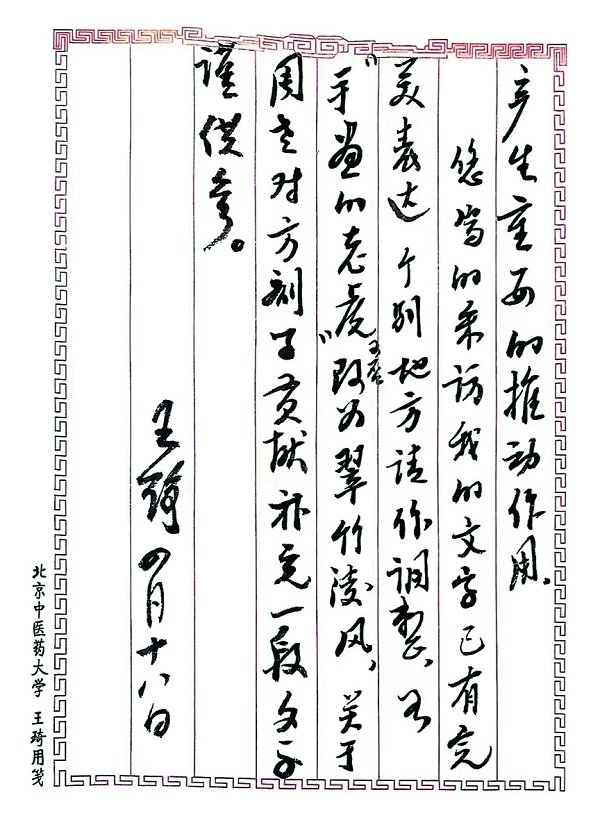 产生重要的推动作用。
您写的采访我的文字已有完
美表达 个别地方请作调整、如
“手画的老虎”可否改为翠竹凌风、关于
周老对方剂学贡献补充一段文字
谨供参。
王琦 四月十八日
北京中医药大学 王琦用笺